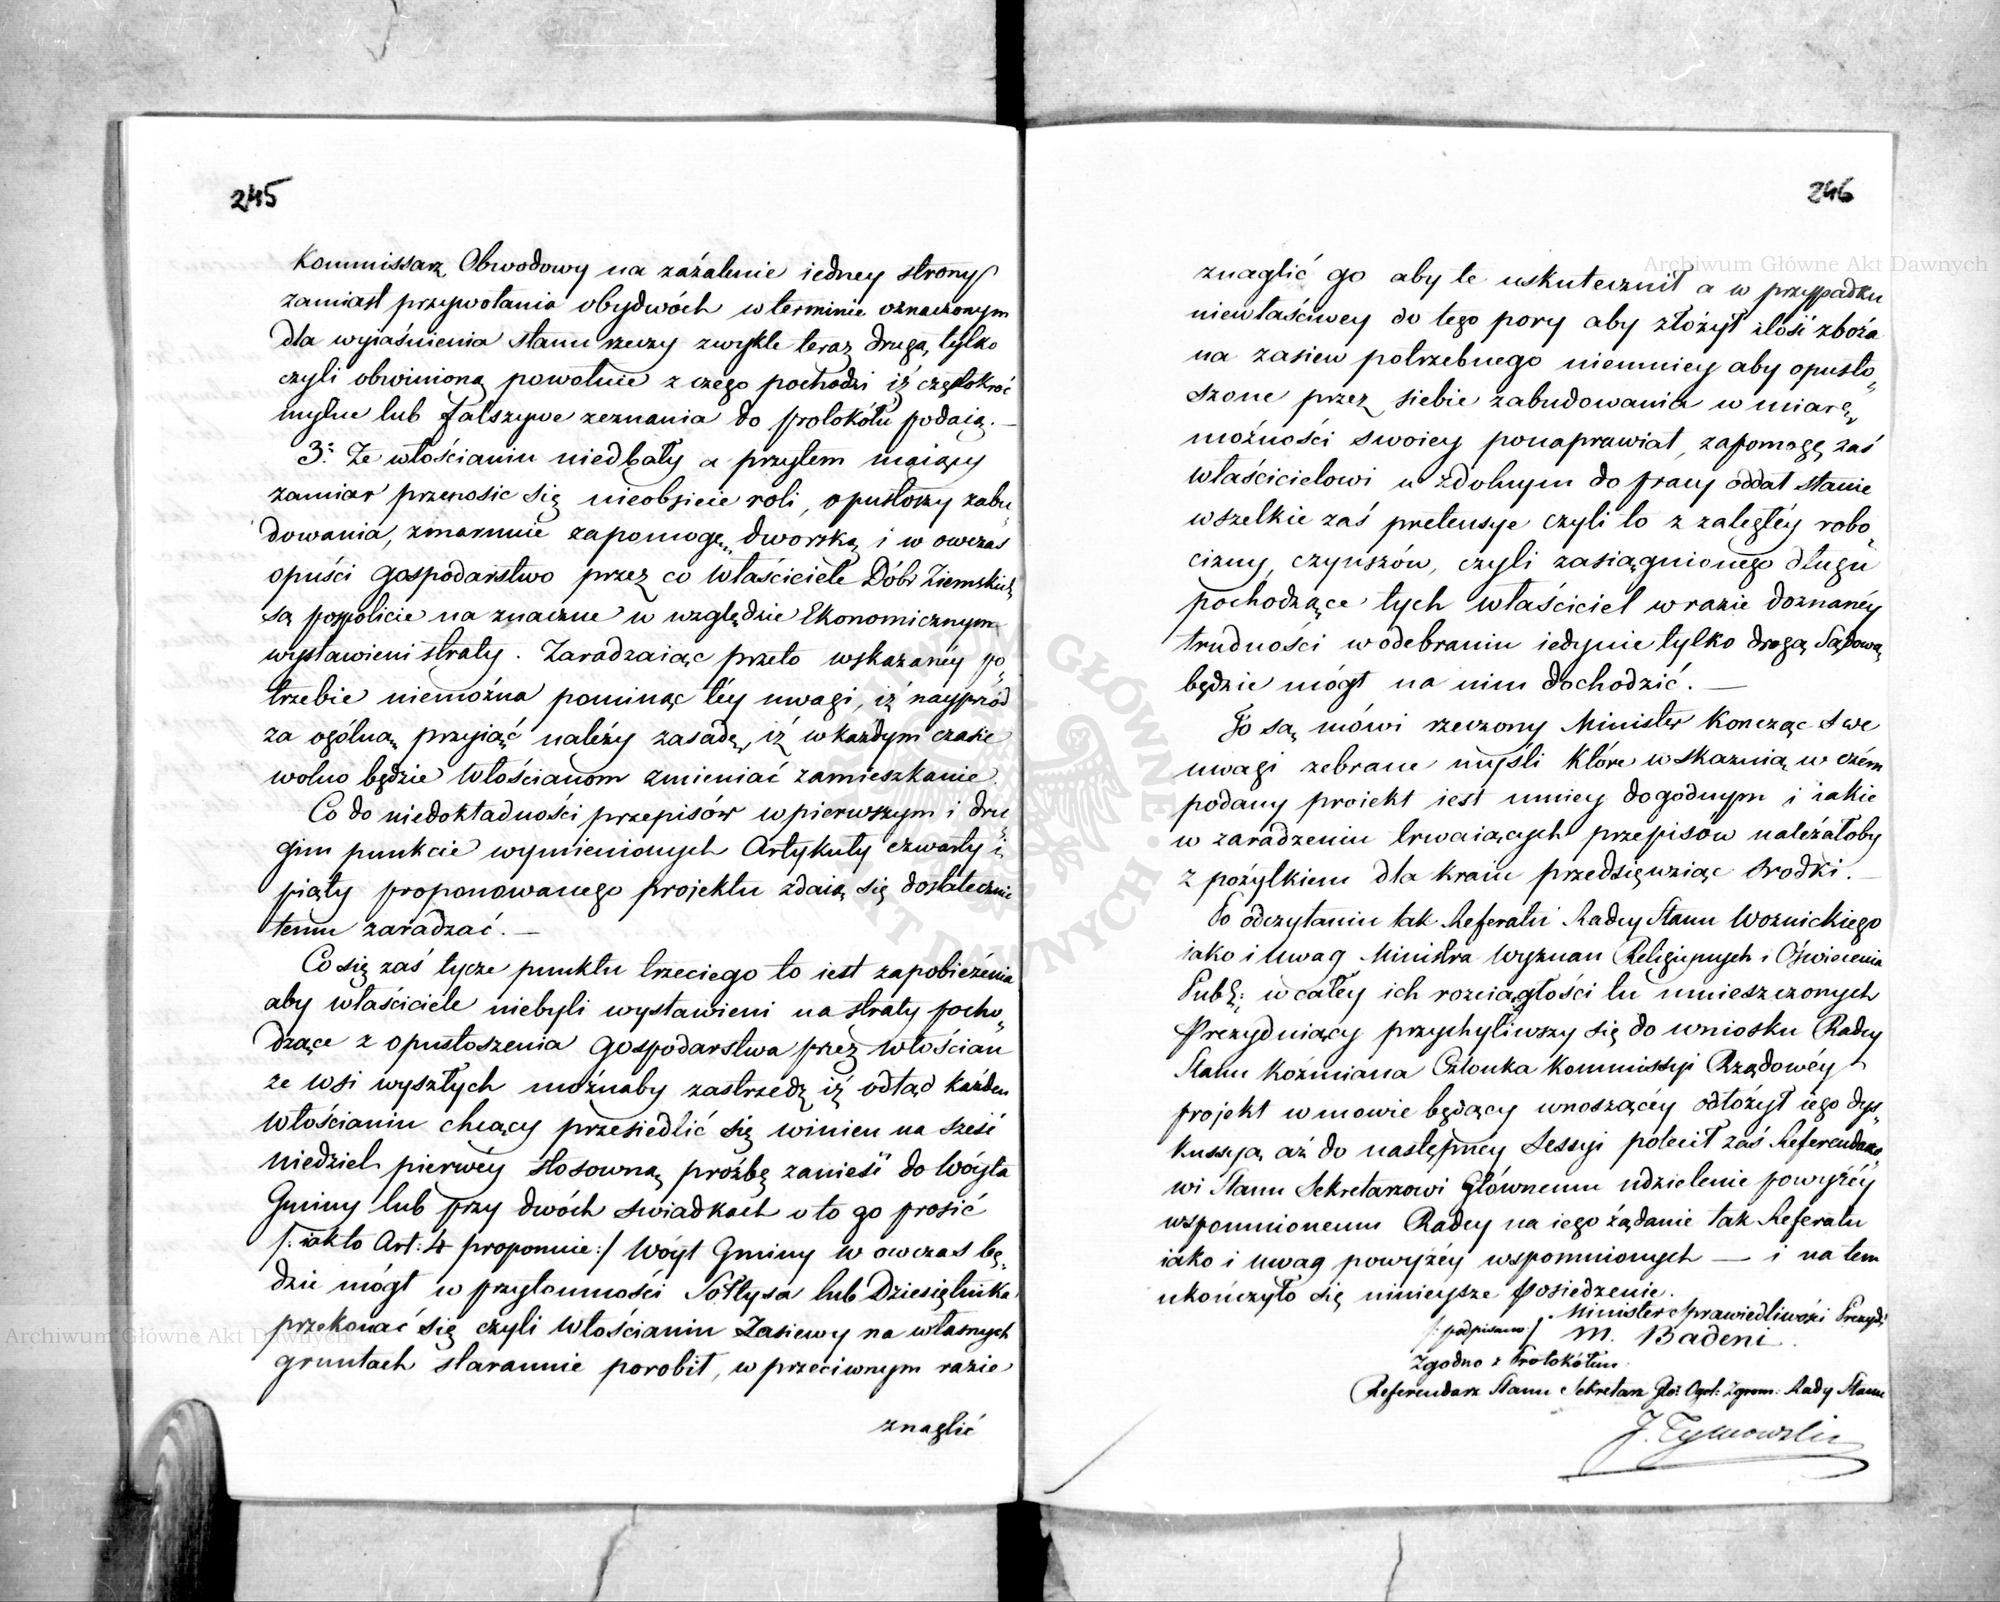 245
Kommissarz Obwodowy na zażalenie iedney strony
zamiast przywołania obydwóch w terminie oznaczonym
dla wyiaśnienia stanu rzeczy zwykle teraz drugą tylko
czyli obwinioną powołuie z czego pochodzi iż częstokroć
mylne lub fałszywe zeznania do protokółu podaią. —
3º Że włościanin niedbały a przytem maiący
zamiar przenosic się nieobsieie roli, opustoszy zabu„
dowania, zmarnuie zapomogę dworską i w owczas
opuści gospodarstwo przez co właściciele Dóbr Ziemskich
są pospolicie na znaczne w względzie Ekonomicznym
wystawieni straty. Zaradzaiąc przeto wskazanéy po„
trzebie niemożna pominąc téy uwagi, iż nayprzód
za ogólną przyiąć należy zasadę, iż w każdym czasie
wolno będzie włościanom zmieniać zamieszkanie.
Co do niedokładności przepisów w pierwszym i dru„
gim punkcie wymienionych Artykuły czwarty i
piąty proponowanego projektu zdaią się dostatecznie
temu zaradzać. —
Co się zaś tycze punktu trzeciego to iest zapobieżenia
aby właściciele niebyli wystawieni na straty pocho„
dzące z opustoszenia gospodarstwa przez włościan
ze wsi wyszłych możnaby zastrzedz iż odtąd każden
włościanin chcący przesiedlić się winien na sześć
niedziel pierwéy stosowną proźbę zanieść do Wóyta
Gminy lub przy dwóch swiadkach o to go prosić
/: iak to Art: 4 proponuie:/ Wóyt Gminy w owczas bę„
dzie mógł w przytomności Sołtysa lub Dziesiętnika
przekonać się czyli włościanin Zasiewy na własnych
gruntach starannie porobił, w przeciwnym razie
znaglić
246
znaglić go aby te uskutecznił a w przypadku
niewłaściwey do tego pory aby złożył ilość zboża
na zasiew potrzebnego niemniey aby opusto„
szone przez siebie zabudowania w miarę
możności swoiey ponaprawiał, zapomogę zaś
właścicielowi w zdolnym do pracy oddał stanie
wszelkie zaś pretensye czyli to z zaległéy robo„
cizny, czynszów, czyli zasiągnionego długu
pochodzące tych właściciel w razie doznanéy
trudności w odebraniu iedynie tylko drogą Sądową
będzie mógł na nim dochodzić. —
To są mówi rzeczony Minister Kończąc swe
uwagi zebrane myśli które wskazuią w czém
podany proiekt iest mniey dogodnym i iakie
w zaradzeniu trwaiących przepisów należałoby
z pożytkiem dla kraiu przedsięwziąc srodki. —
Po odczytaniu tak Referatu Radcy Stanu Woźnickiego
iako i uwag Ministra Wyznan Religiynych i Oświecenia
Publ: w całey ich rozciągłości tu umieszczonych
Prezyduiący przychyliwszy się do wniosku Radcy
Stanu Koźmiana Członka Kommissyi Rządowéy
projekt w mowie będący wnoszącéy odłożył iego dys„
kussyą aż do następnéy Sessyi polecił zaś Referendarzo„
wi Stanu Sekretarzowi Głównemu udzielenie powyżéy
wspomnionemu Radcy na iego żądanie tak Referatu
iako i uwag powyżéy wspomnionych — i na tem
ukończyło się ninieysze Posiedzenie.
Minister Sprawiedliwości Prezyd:
/: podpisano :/ M. Badeni.
Zgodno z Protokółem
Referendarz Stanu Sekretarz Głó: Ogól: Zgrom: Rady Stanu
J. Tymowski
Archiwum Główne Akt Dawnych
Archiwum Główne Akt Dawnych
ARCHIWUM GŁÓWNE AKT DAWNYCH